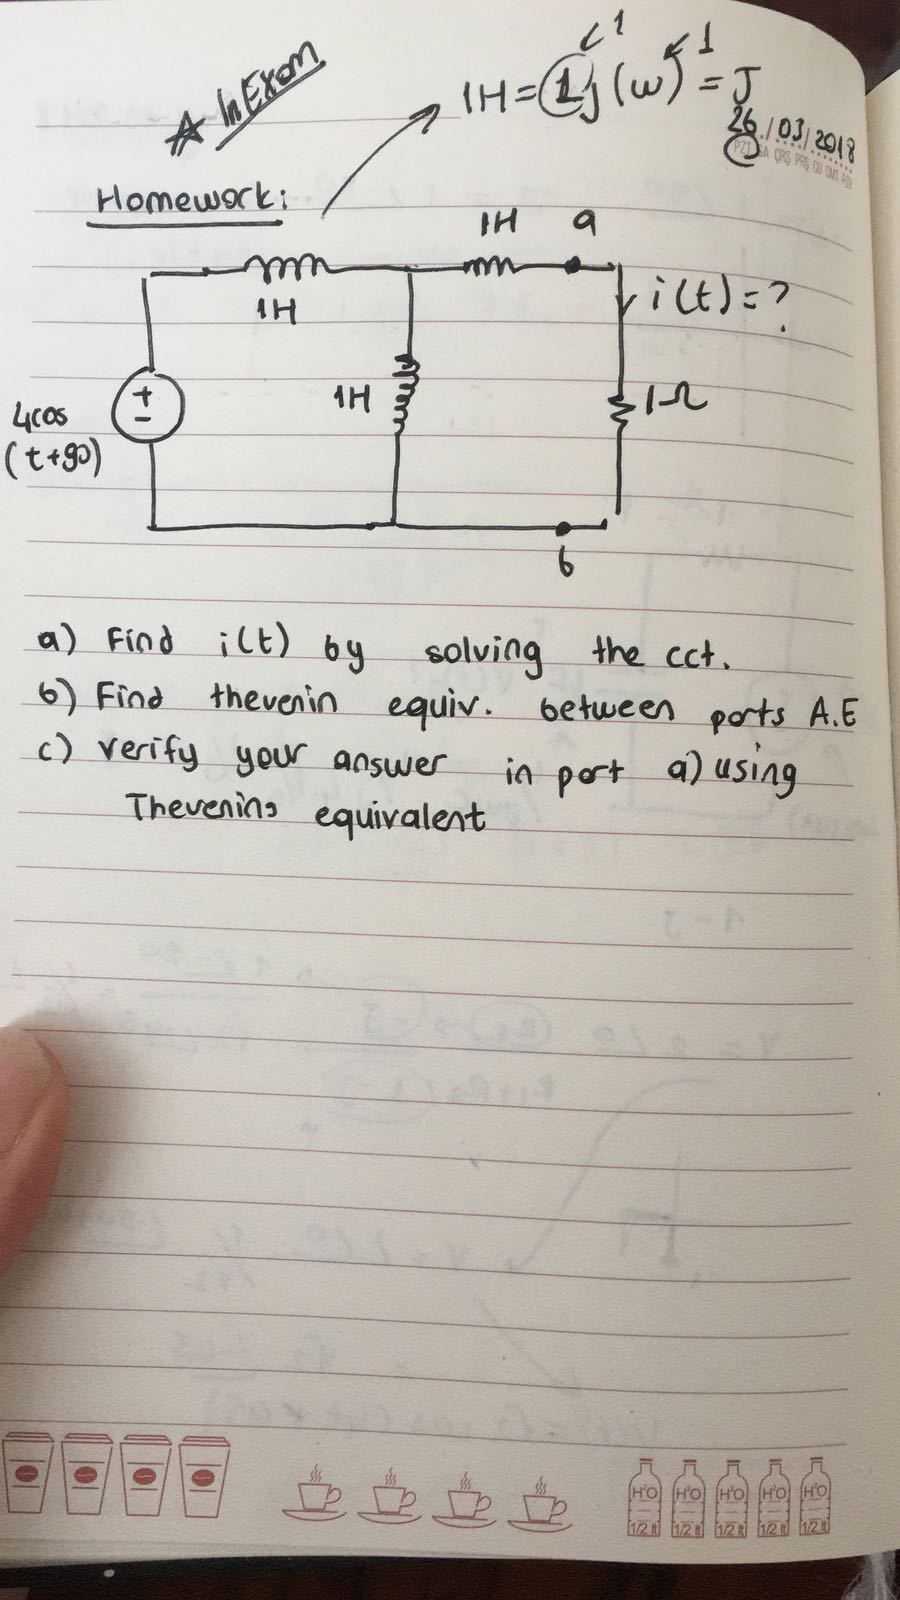 ☆ In Exam
1H = 1j(w) = J
1
1
26/03/2018
PZT SA ÇRŞ PRŞ CU CMT PZR
Homework:
1H
a
1H
i(t)=?
1H
1Ω
+
-
4cos
(t+90)
b
a) Find i(t) by solving the cct.
b) Find thevenin equiv. between ports A.E
c) verify your answer in port a) using
Thevenins equivalent
H²O H²O H²O H²O H²O
1/2 lt 1/2 lt 1/2 lt 1/2 lt 1/2 lt